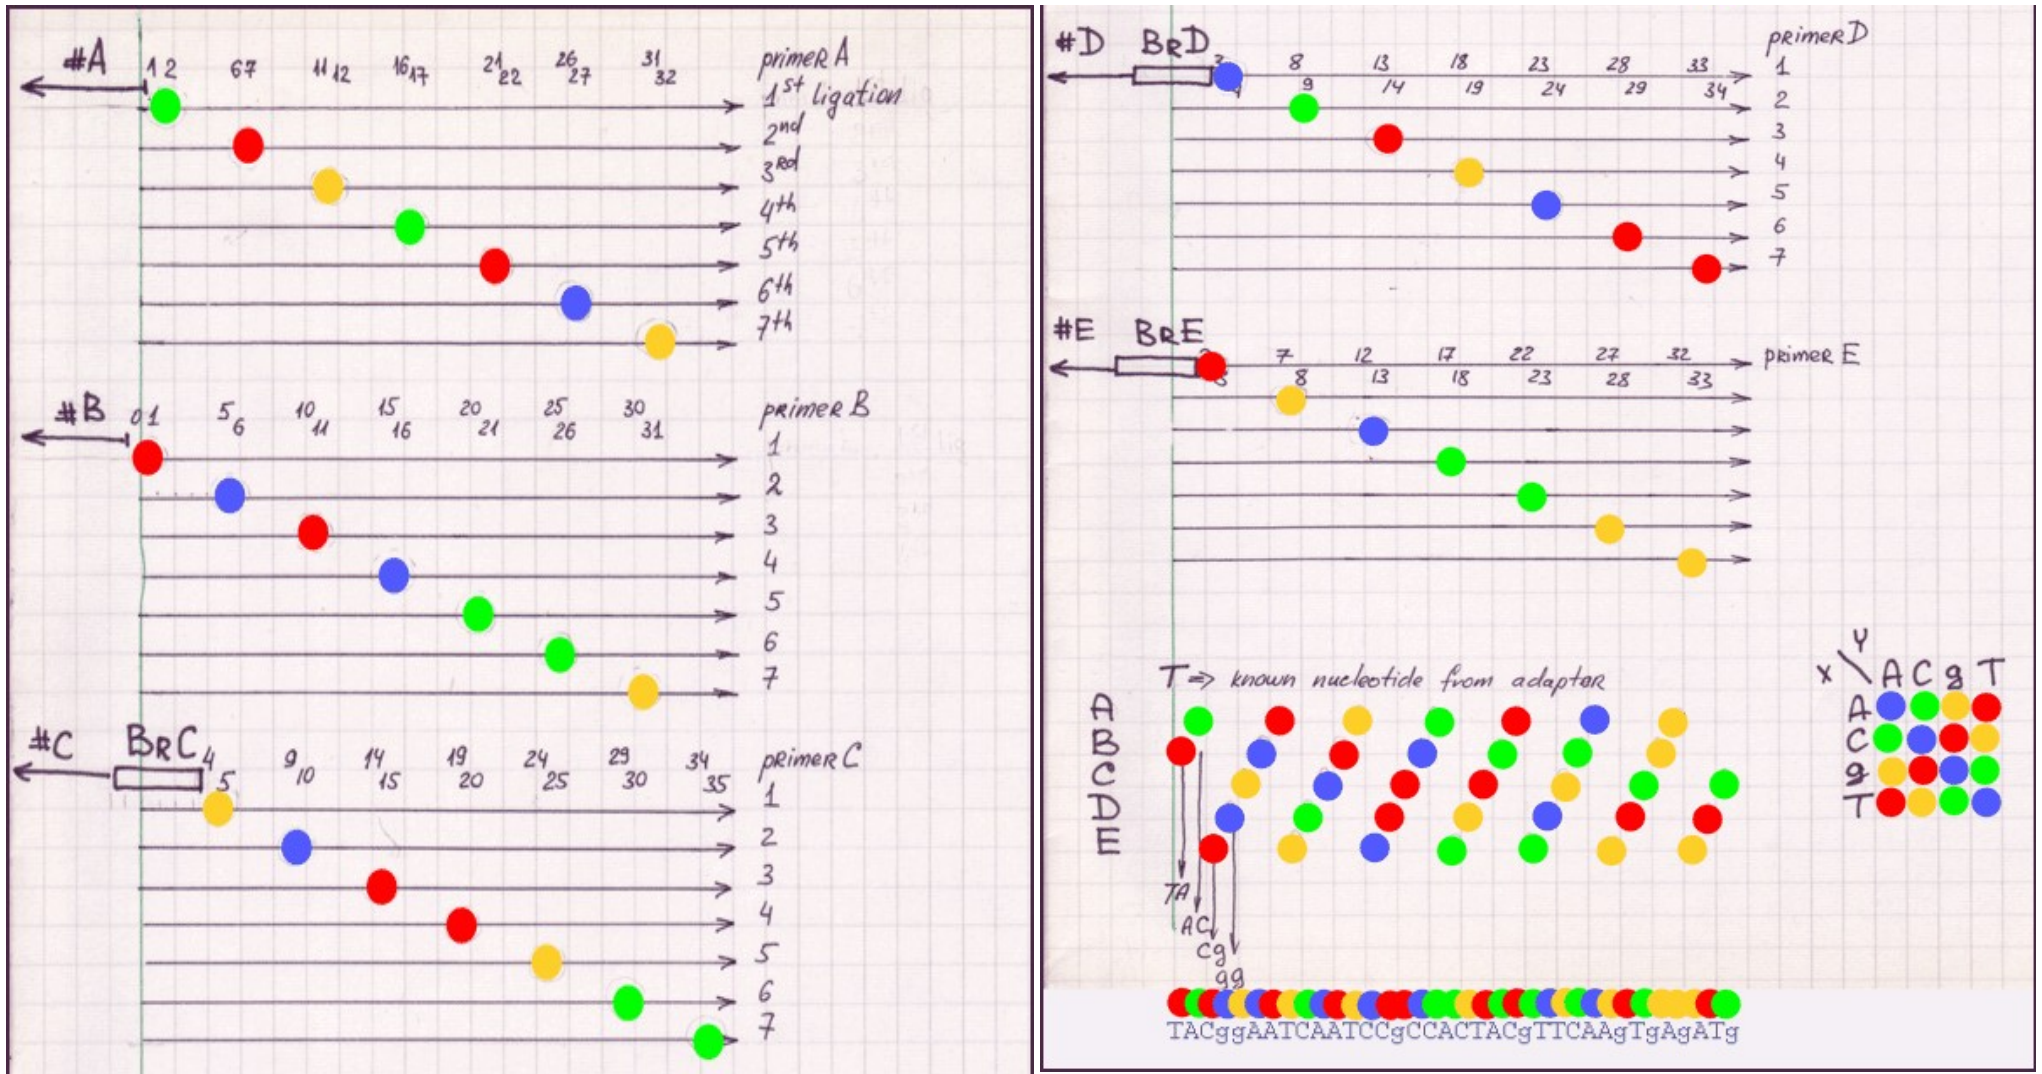 #A
1 2 67 11 12 16 17 21 22 26 27 31 32
primer A
1st ligation
2nd
3rd
4th
5th
6th
7th
#B
0 1 5 6 10 11 15 16 20 21 25 26 30 31
primer B
1
2
3
4
5
6
7
#C BRC
4 5 9 10 14 15 19 20 24 25 29 30 34 35
primer C
1
2
3
4
5
6
7
#D BRD
3 4 8 9 13 14 18 19 23 24 28 29 33 34
primer D
1
2
3
4
5
6
7
#E BRE
2 3 7 8 12 13 17 18 22 23 27 28 32 33
primer E
T => known nucleotide from adapter
D
B
C
D
E
TA
AC
Cg
gg
Y
X \ A C g T
A
C
g
T
TACggAATCAATCCgCCACTACgTTCAAgTgAgATg